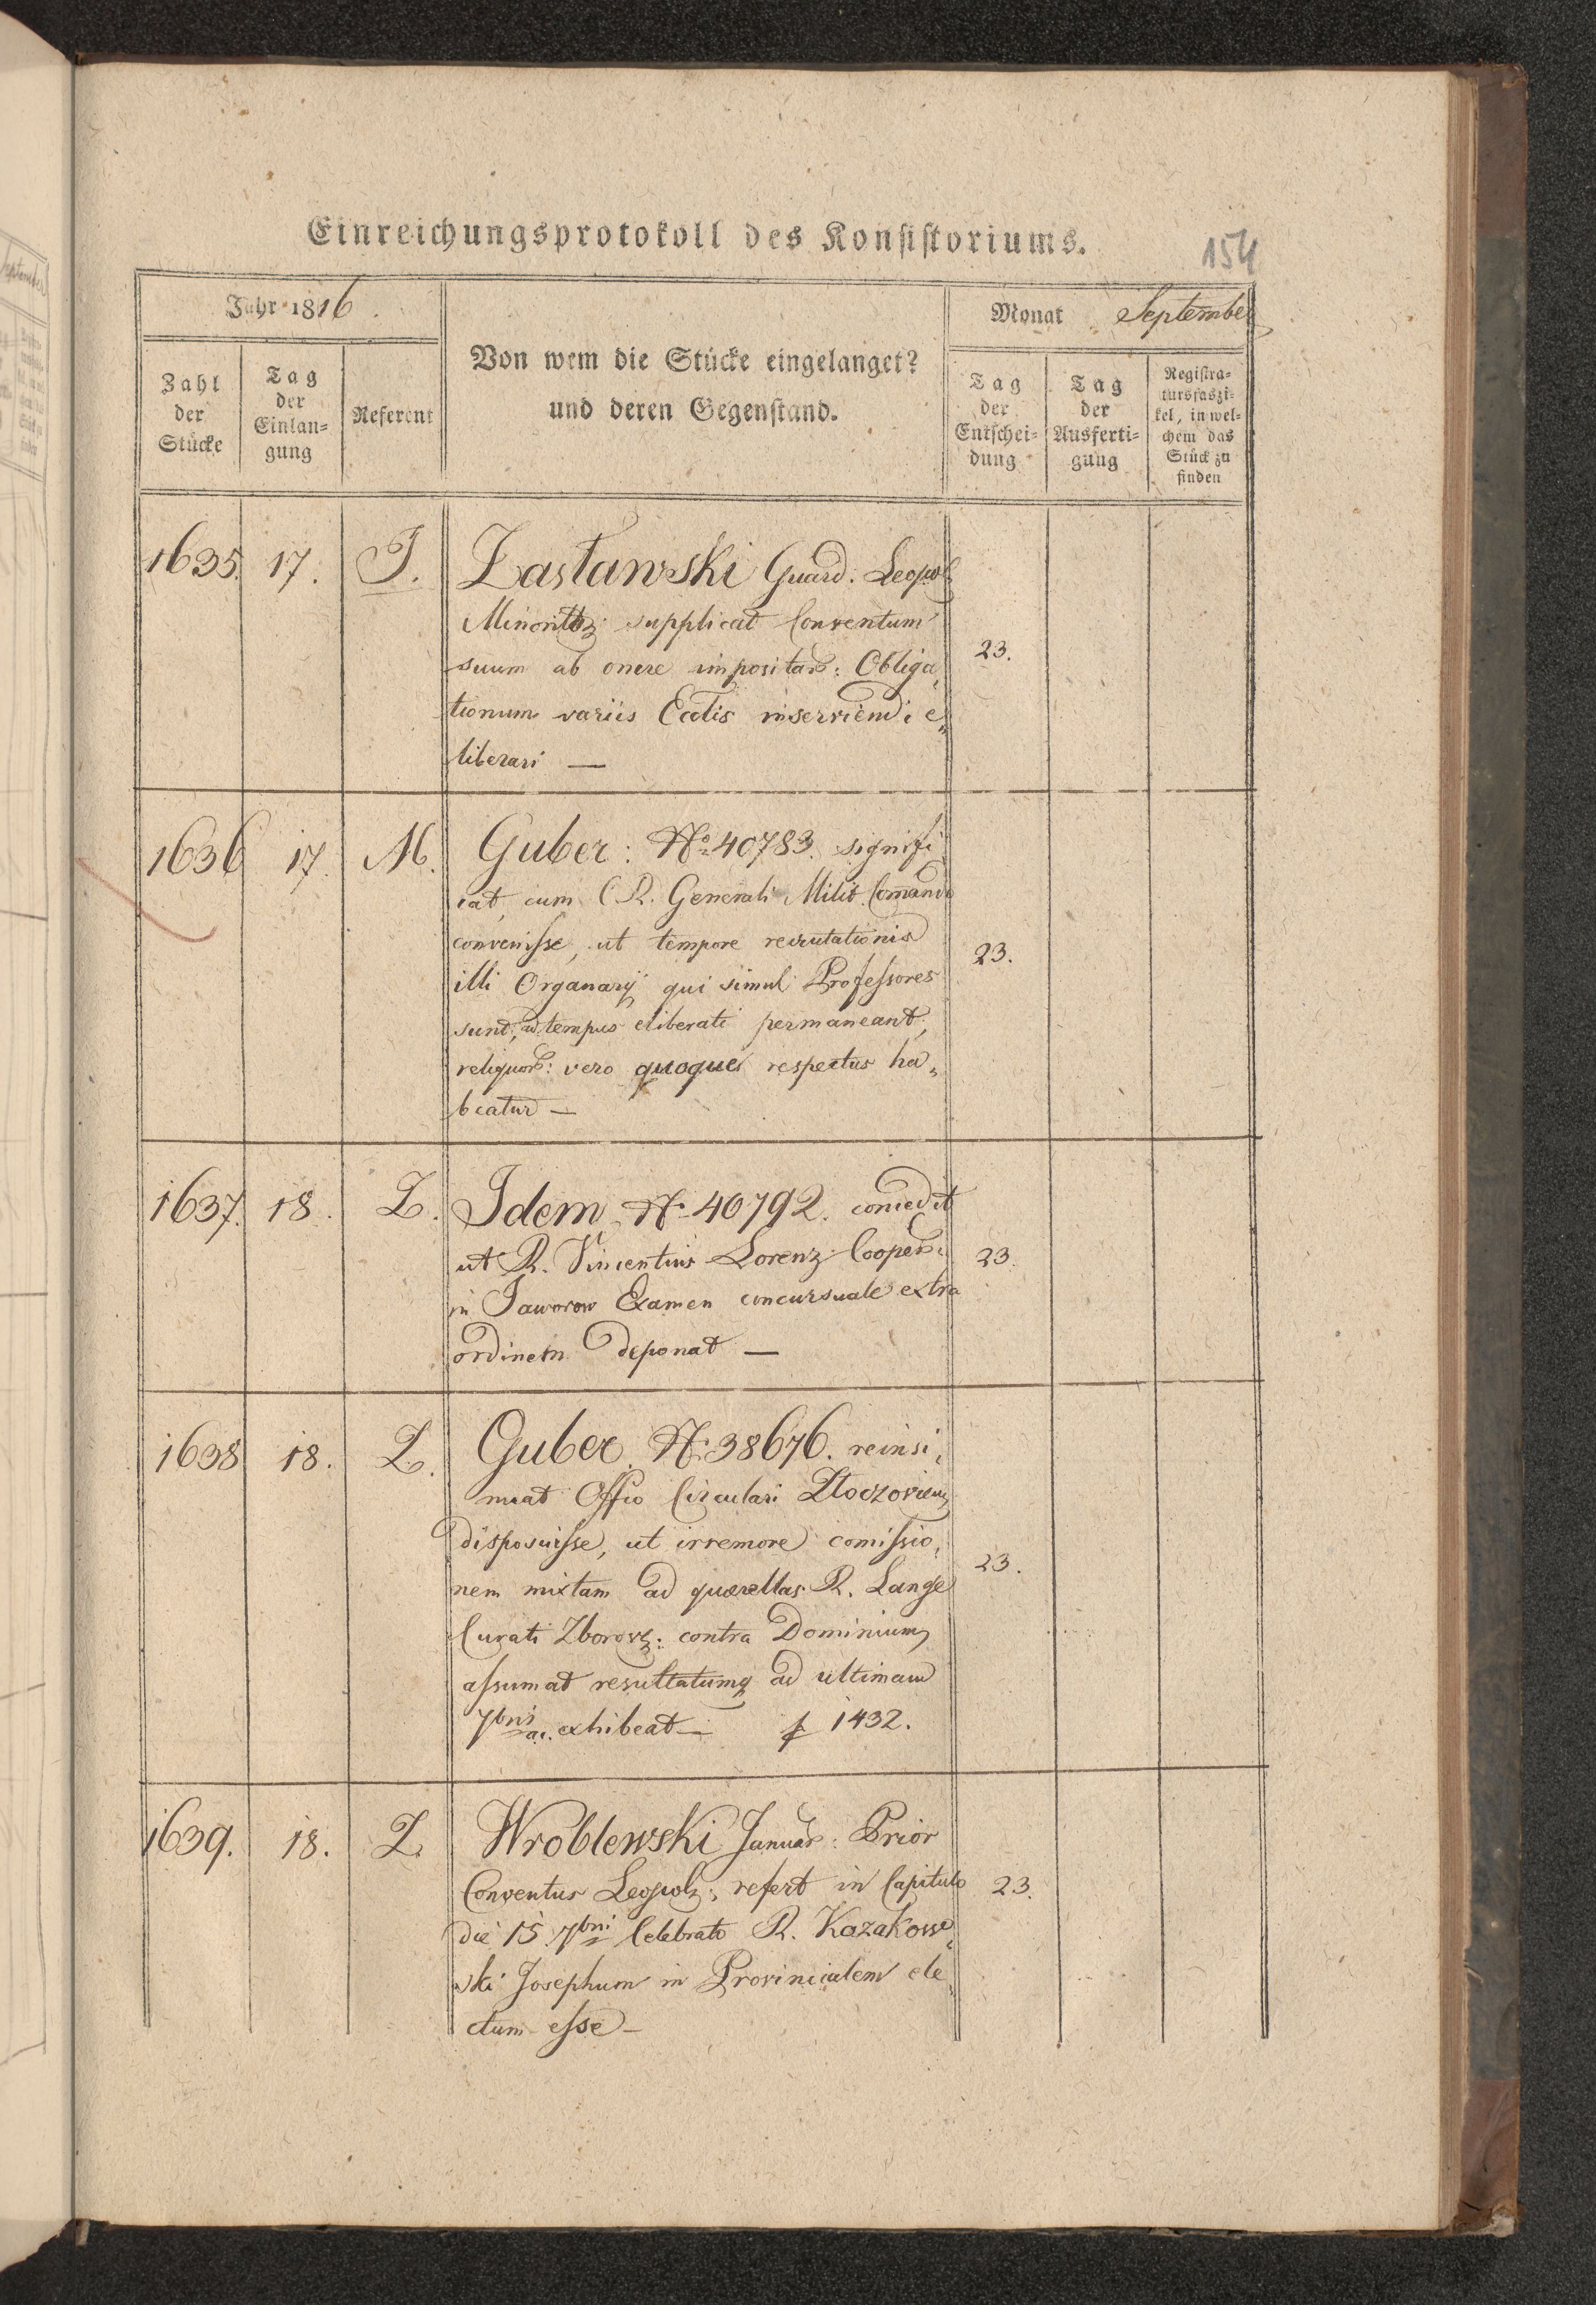 Einreichungsprotokoll des Konsistoriums.
154
Jahr 1816.
Monat September
Zahl der Stücke
Tag der Einlan-gung
Referent
Von wem die Stücke eingelanget?
und deren Gegenstand.
Tag der Entschei-dung
Tag der Ausferti-gung
Registra-tursfaszi-kel, in wel-chem das Stück zu finden
1635. 17. J. Zasławski Guard. Leopol
Minoritt: supplicat Conventum
suum ab onere impositar: Obliga„
tionum variis Ecclis inserviendi e„
liberari —
23.
1636 17. M. Guber: No 40783. signifi
cat, cum C. R. Generali Milit. Comando
convenisse, ut tempore recrutationis
illi Organarij qui simul Professores
sunt, ad tempus eliberati permaneant,
reliquor: vero quoque respectus ha„
beatur —
23.
1637. 18. Z. Idem N 40792. concedit
ut R. Vincentius Lorenz Cooper:
in Jaworow Examen concursuale extra
ordinem deponat —
23.
1638 18. Z. Guber. N. 38676. reinsi„
nuat Offio Circulari Złoczovien
disposuisse, ut irremore comissio„
nem mixtam ad quærellas R. Lange
Curati Zborov: contra Dominium
assumat resultatumq ad ultimam
7bris a.c. exhibeat — f 1432.
23.
1639. 18. Z. Wroblewski Januar: Prior
Conventus Leopol: refert in Capitulo
die 15 7bris Celebrato R. Kazakow„
ski Josephum in Provincialem ele„
ctum esse —
23.